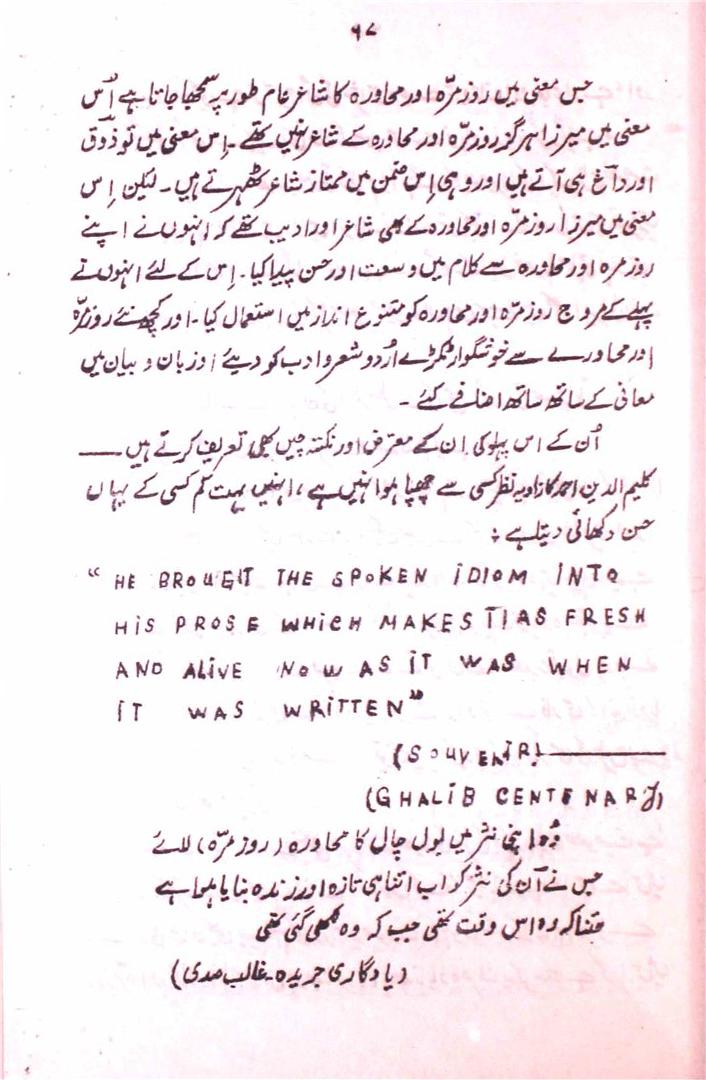 ۹۷
جس معنی میں روزمرّہ اور محاورہ کا شاعر عام طور پر سمجھا جاتا ہے اُس
معنی میں میرزا ہرگز روزمرّہ اور محاورہ کے شاعر نہیں تھے۔ اِس معنی میں تو ذوق
اور داغ ہی آتے ہیں اور وہی اِس ضمن میں ممتاز شاعر ٹھہرتے ہیں۔ لیکن اِس
معنی میں میرزا روزمرّہ اور محاورہ کے بھی شاعر اور ادیب تھے کہ انہوں نے اپنے
روزمرہ اور محاورہ سے کلام میں وسعت اور حسن پیدا کیا۔ اِس کے لئے انہوں نے
پہلے کے مروج روزمرّہ اور محاورہ کو متنوع انداز میں استعمال کیا۔ اور کچھ نئے روزمرّہ
اور محاورے سے خوشگوار ٹکڑے اُردو شعر و ادب کو دیئے اور زبان و بیان میں
معانی کے ساتھ ساتھ اضافے کئے ۔
اُن کے اس پہلو کی ان کے معترض اور نکتہ چیں بھی تعریف کرتے ہیں ——
کلیم الدین احمد کا زاویہ نظر کسی سے چھپا ہوا نہیں ہے ، انہیں بہت کم کسی کے یہاں
حسن دکھائی دیتا ہے :
“ HE BROUGHT THE SPOKEN IDIOM INTO
HIS PROSE WHICH MAKES IT AS FRESH
AND ALIVE NOW AS IT WAS WHEN
IT WAS WRITTEN”
(SOUVENIR) ————
(GHALIB CENTENARY)
وہ اپنی نثر میں بول چال کا محاورہ (روزمرّہ) لائے
جس نے اُن کی نثر کو اب اتنا ہی تازہ اور زندہ بنایا ہوا ہے
جتنا کہ وہ اس وقت تھی جب کہ وہ لکھی گئی تھی
(یادگاری جریدہ۔ غالب صدی)